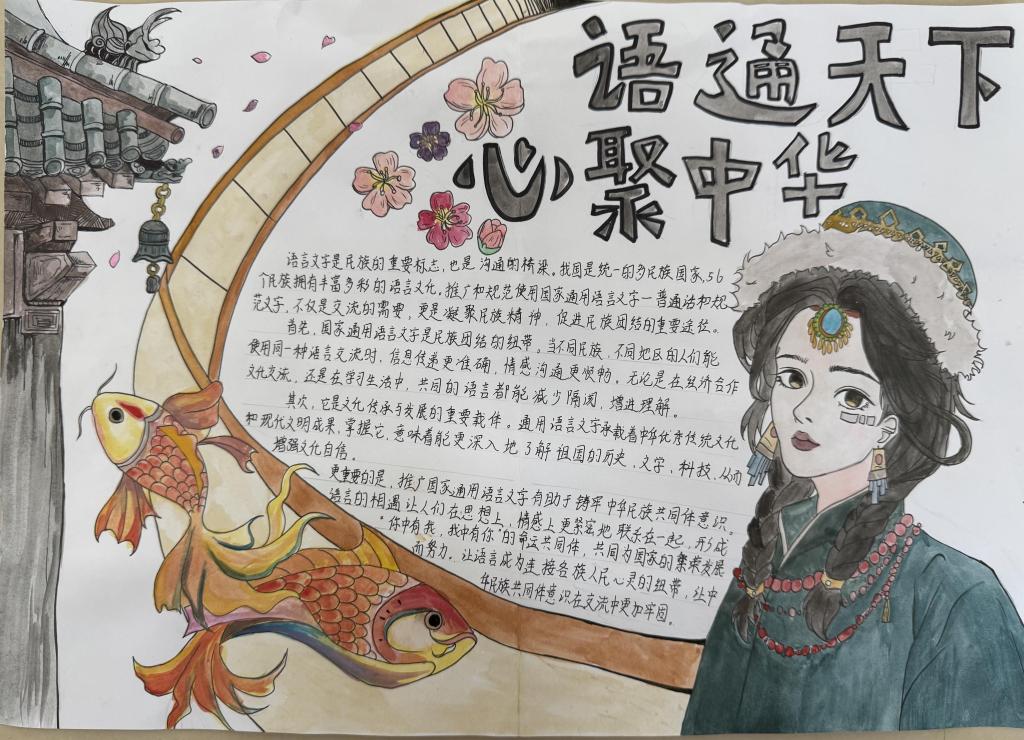 语通天下
心聚中华
语言文字是民族的重要标志，也是沟通的桥梁。我国是统一的多民族国家，56
个民族拥有丰富多彩的语言文化。推广和规范使用国家通用语言文字—普通话和规
范文字，不仅是交流的需要，更是凝聚民族精神，促进民族团结的重要途径。
首先，国家通用语言文字是民族团结的纽带。当不同民族，不同地区的人们能
使用同一种语言交流时，信息传递更准确，情感沟通更顺畅。无论是在经济合作
文化交流，还是在学习生活中，共同的语言都能减少隔阂，增进理解。
其次，它是文化传承与发展的重要载体。通用语言文字承载着中华优秀传统文化
和现代文明成果，掌握它，意味着能更深入地了解祖国的历史，文学，科技，从而
增强文化自信。
更重要的是，推广国家通用语言文字有助于铸牢中华民族共同体意识。
语言的相通让人们在思想上，情感上更紧密地联系在一起，形成
“你中有我，我中有你”的命运共同体，共同为国家的繁荣发展
而努力。让语言成为连接各族人民心灵的纽带，让中
华民族共同体意识在交流中更加牢固。